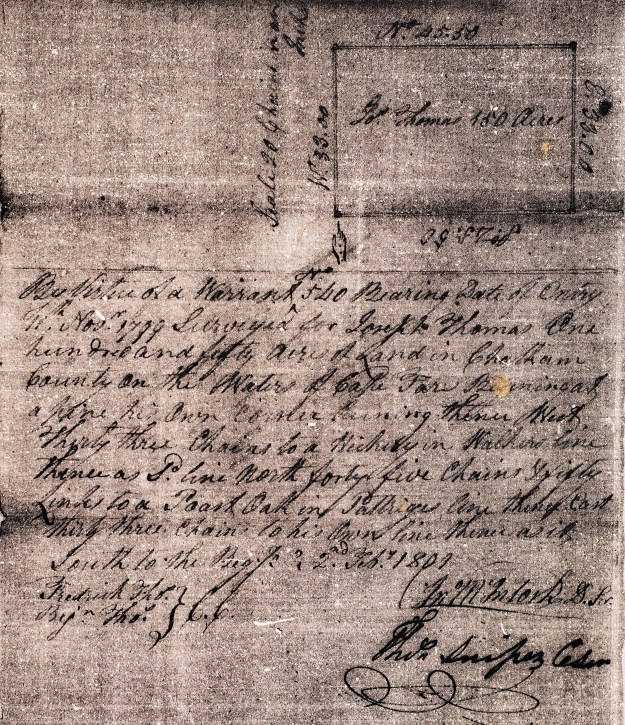 No 45.50
Scale 20 Chains in an Inch
Wt 33.00
Jos. Thomas 150 Acres
Et 33.00
By Virtue of a Warrant No 540 Bearing Date of Entry
Novr. 1799 Surveyed for Joseph Thomas One
hundred and fifty Acres of Land in Chatham
County On the Waters of Cape Fare Begining at
a his Own Corner Runing thence West
Thirty three Chains to a Hickory in Walkers line
thence as Sd. line North forty five Chains & fifty
links to a Poast Oak in line thence East
thirty three Chains to his Own line thence as it
South to the Beg. 2d Feby. 1801
Fredrick Thos.
Bejn. Thos. } C.C.
McIntosh D. Sr.
Thos. Snipes